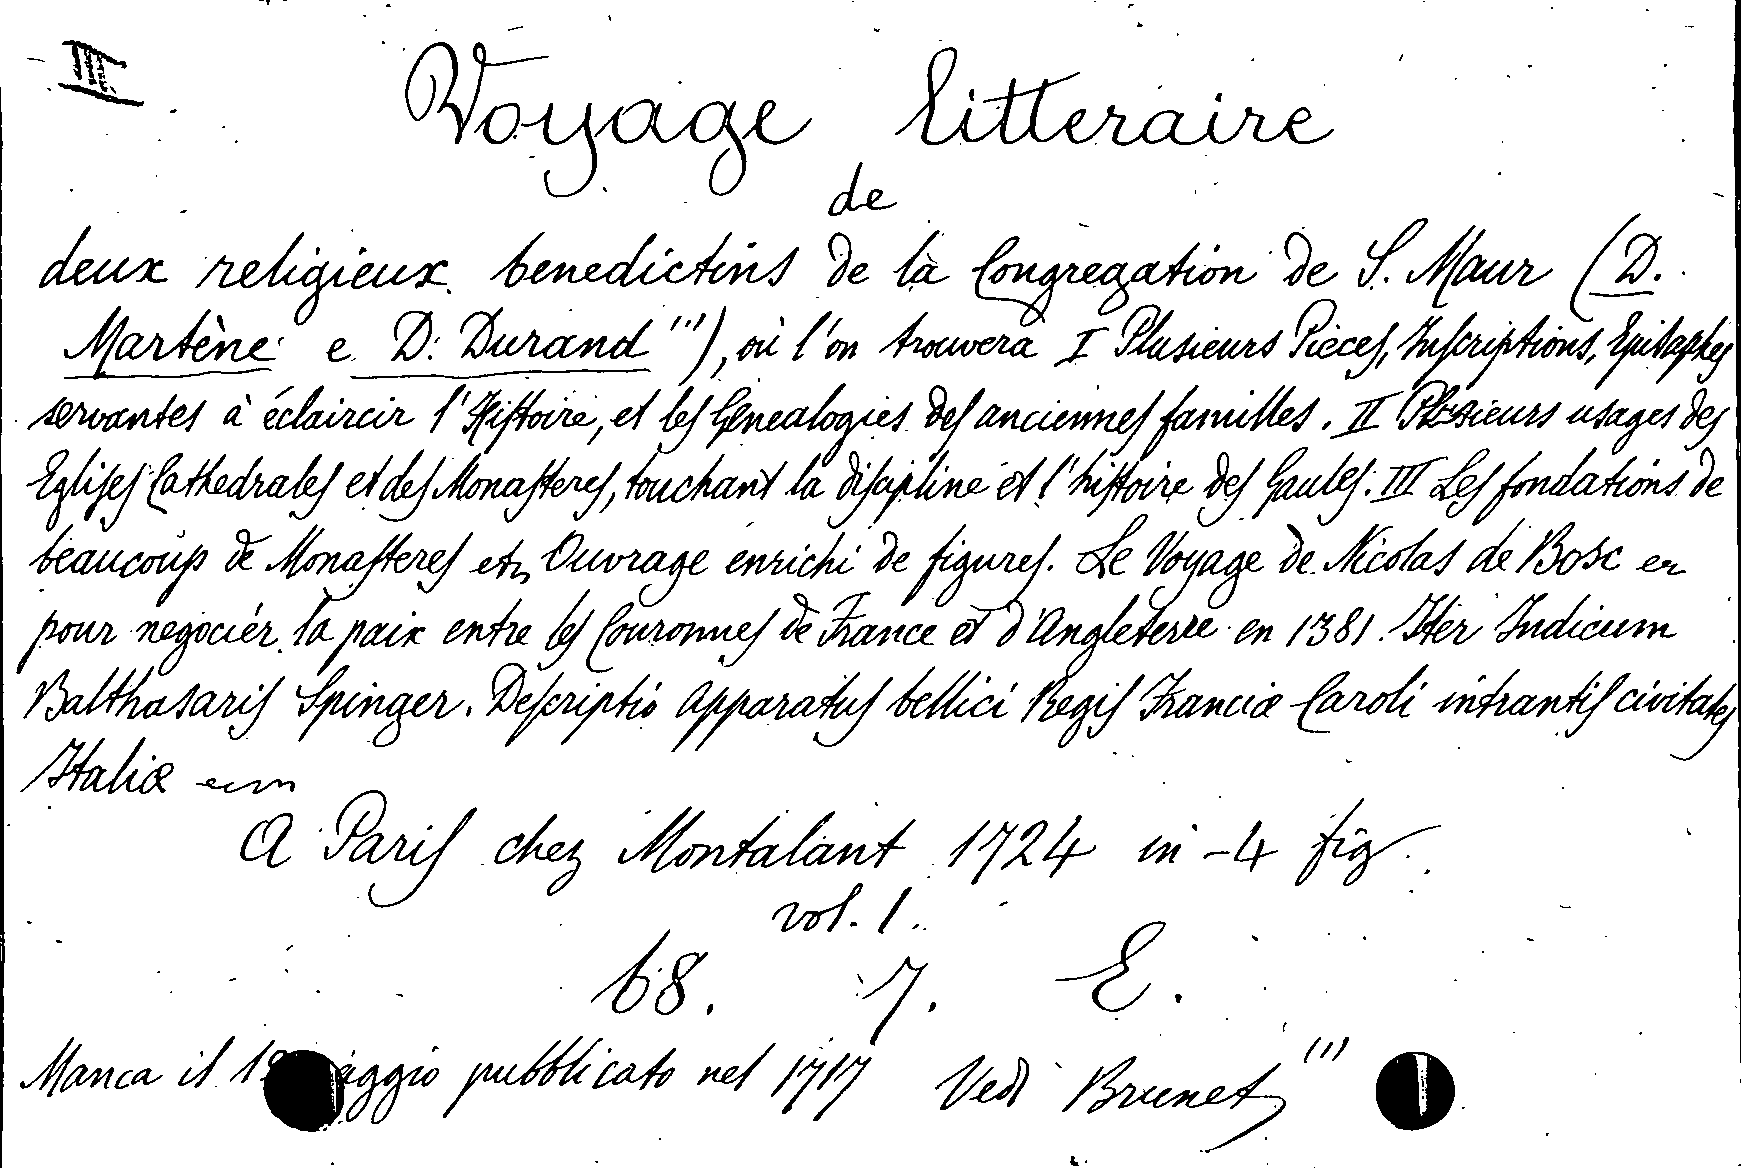 III.
Voyage Litteraire
de
deux religieux benedictins de la Congregation de S. Maur (D.
Martène e D. Durand "'), où l'on trouvera I Plusieurs Pieces, Inscriptions, Epitaphes
servantes à éclaircir l'Histoire, et les Genealogies des anciennes familles. II Plusieurs usages des
Eglises Cathedrales et des Monasteres, touchant la discipline et l'histoire des Gaules. III Les fondations de
beaucoup de Monasteres etc Ouvrage enrichi de figures. Le Voyage de Nicolas de Bosc
pour negociér la paix entre les Couronnes de France et d'Angleterre en 1381. Iter Indicum
Balthasaris Spinger. Descriptio Apparatus bellici Regis Franciæ Caroli intrantis civitates
Italiæ
A Paris chez Montalant 1724 in-4 fig.
vol. 1.
68. 7. E.
Manca il 1º pubblicato nel 1717 Vedi Brunet "'